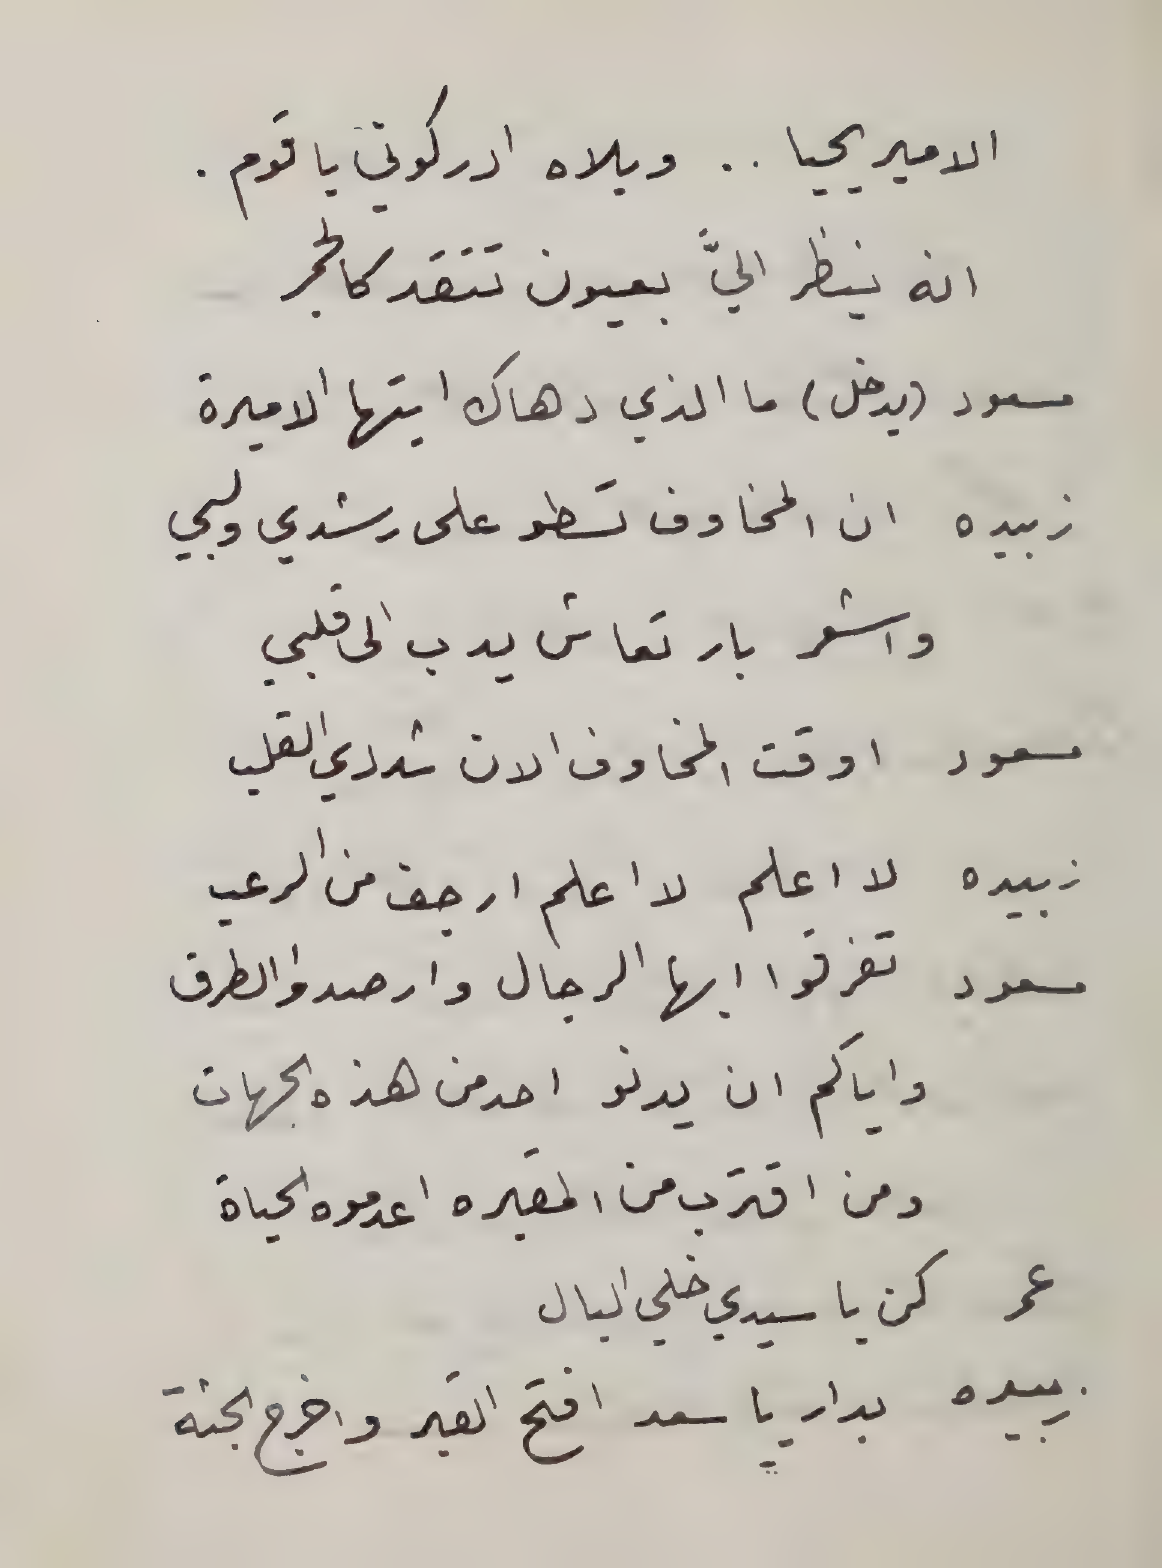 الامير يحيا .. ويلاه ادركوني يا قوم .
انه ينظر اليَّ بعيون تتقد كالجمر
مسعود (يدخل) ما الذي دهاك ايتها الاميرة
زبيده ان المخاوف تسطو على رشدي ولبي
واشعر بارتعاش يدب الى قلبي
مسعود اوقت المخاوف الان شددي القلب
زبيده لا اعلم لا اعلم ارجف من الرعب
مسعود تفرقوا ايها الرجال وارصدوا الطرق
واياكم ان يدنو احد من هذه الجهات
ومن اقترب من المقبره اعدموه الحياة
عمر كن يا سيدي خلي البال
زبيده بدار يا سعد افتح القبر واخرج الجثة